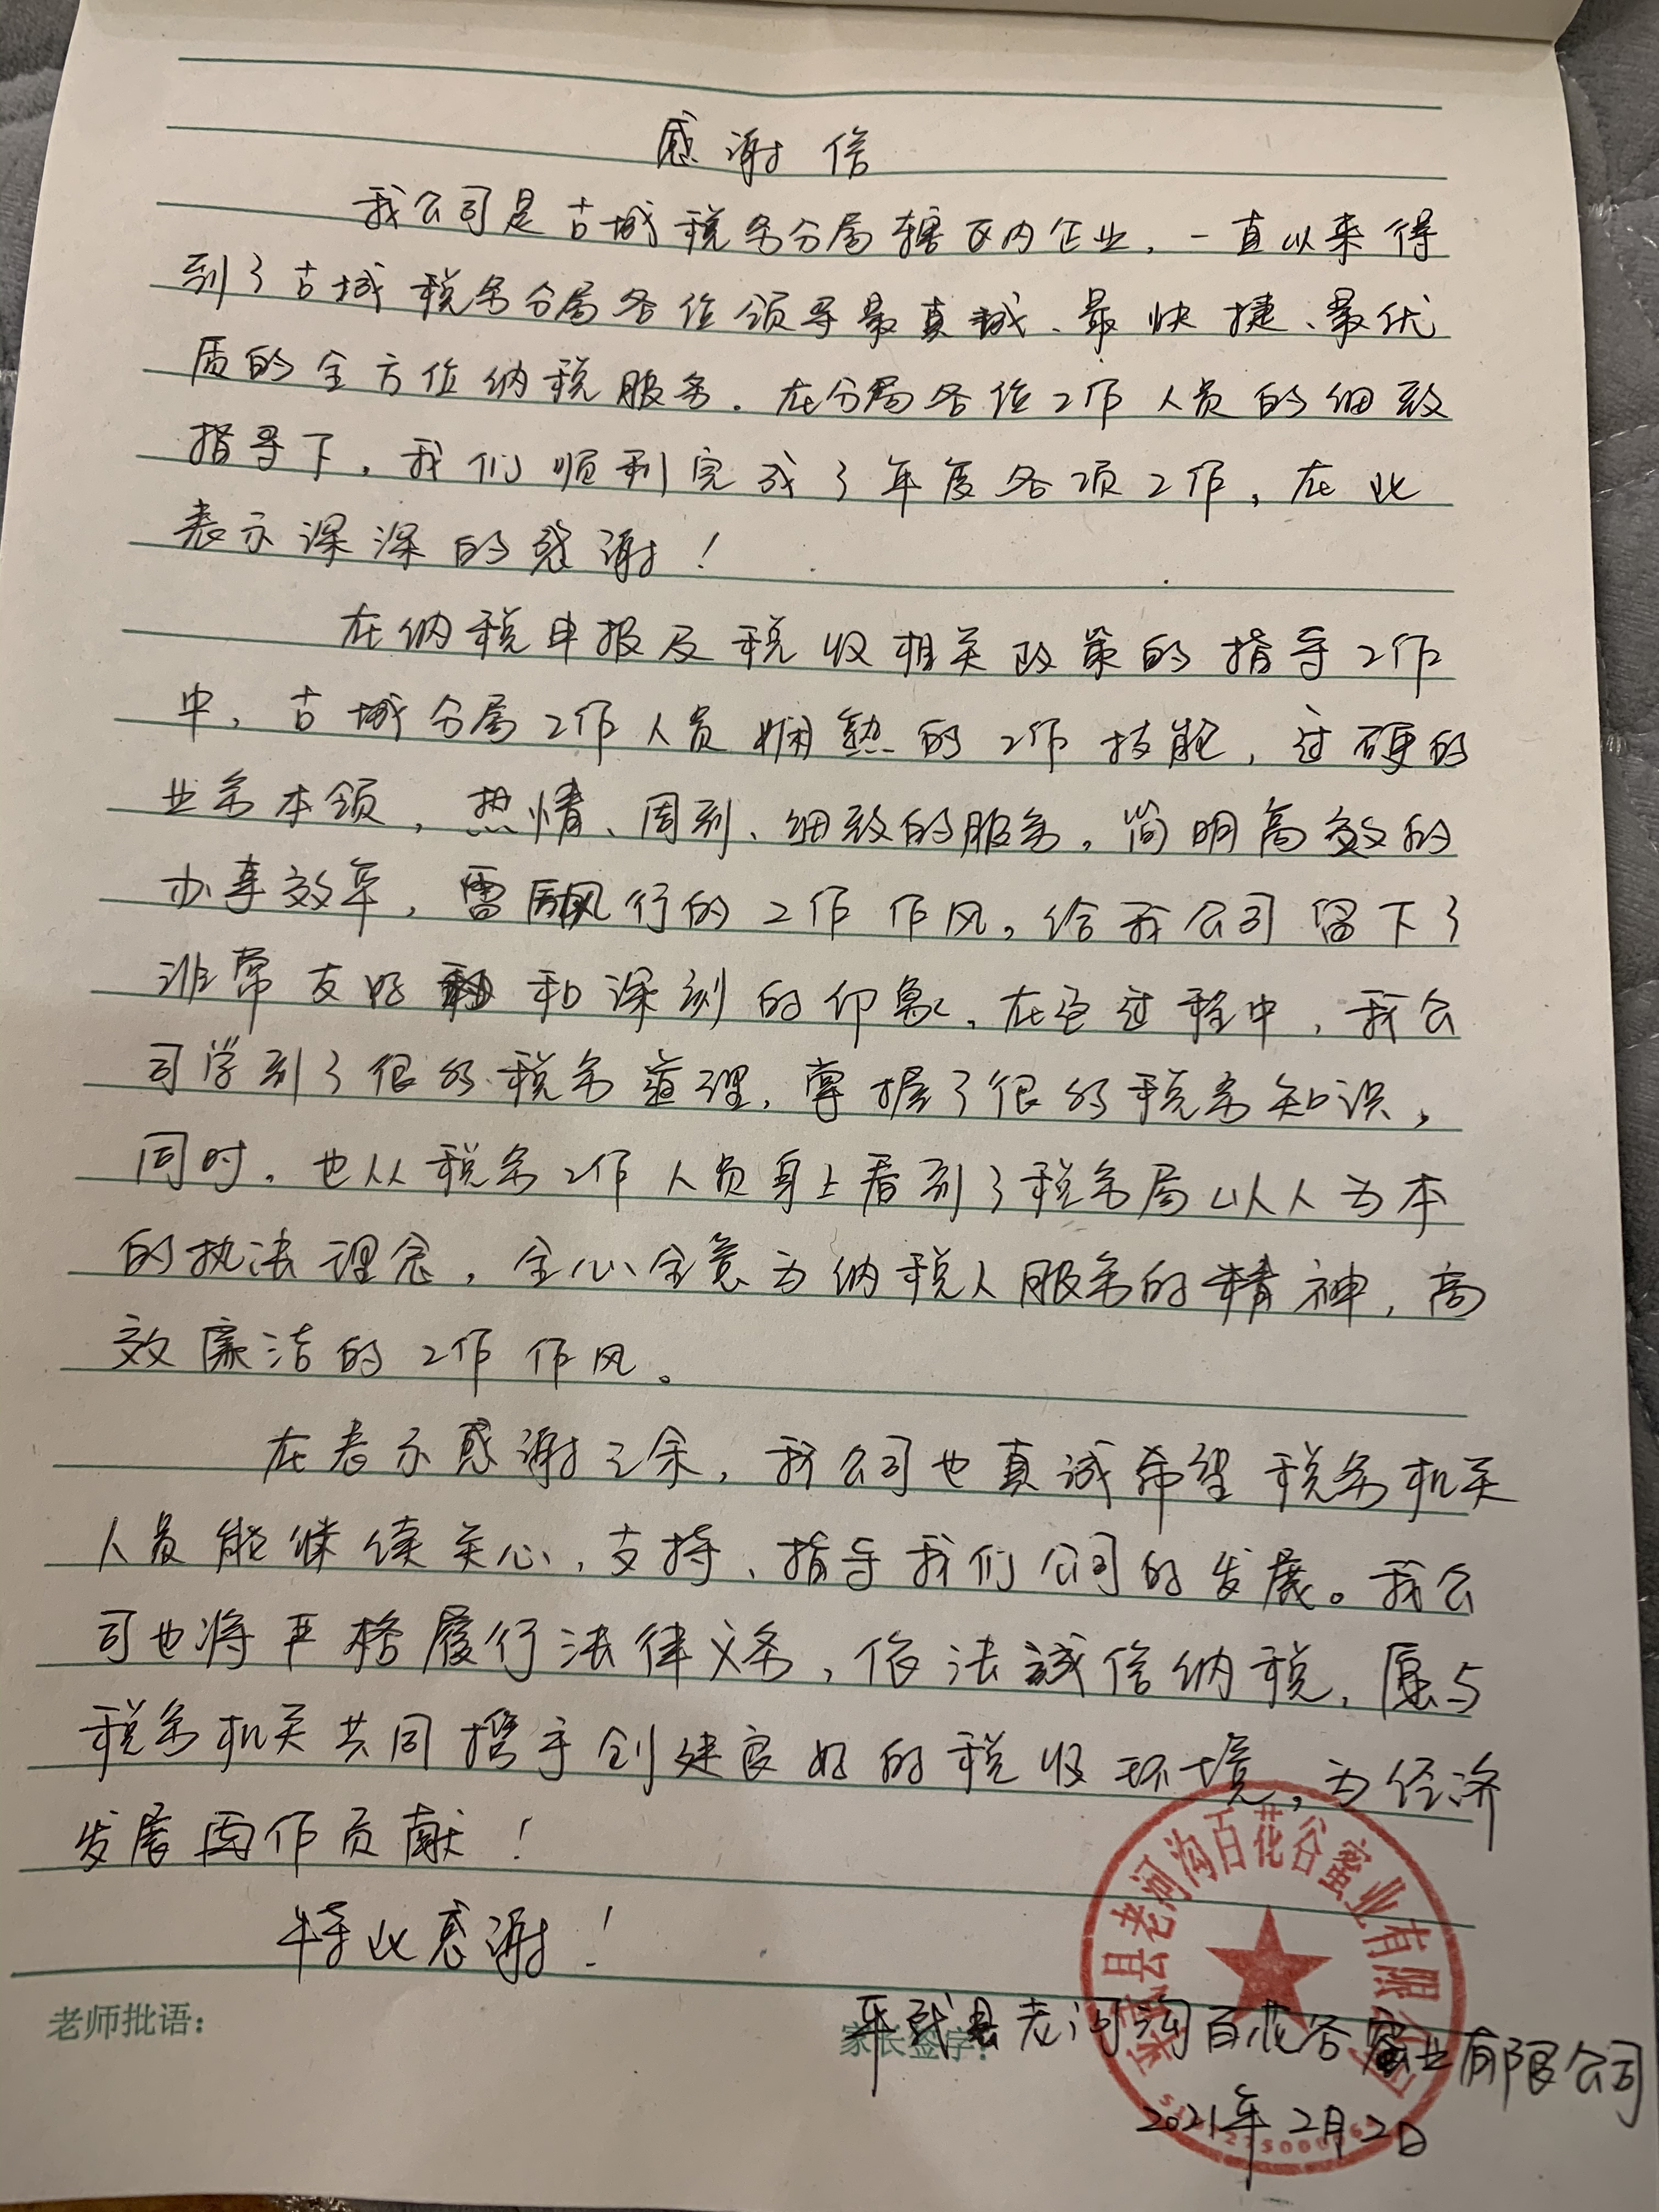 感谢信
我公司是古城税务分局辖区内企业，一直以来得
到了古城税务分局各位领导最真诚、最快捷、最优
质的全方位纳税服务。在分局各位工作人员的细致
指导下，我们顺利完成了年度各项工作，在此
表示深深的感谢！
在纳税申报及税收相关政策的指导工作
中，古城分局工作人员娴熟的工作技能，过硬的
业务本领，热情、周到、细致的服务，简明高效的
办事效率，雷厉风行的工作作风，给我公司留下了
非常友好和深刻的印象，在这过程中，我公
司学到了很多税务道理，掌握了很多税务知识，
同时，也从税务工作人员身上看到了税务局以人为本
的执法理念，全心全意为纳税人服务的精神，高
效廉洁的工作作风。
在表示感谢之余，我公司也真诚希望税务机关
人员能继续关心、支持、指导我们公司的发展。我公
司也将严格履行法律义务，依法诚信纳税，愿与
税务机关共同携手创建良好的税收环境，为经济
发展再作贡献！
特此感谢！
老师批语：
家长签字：
平武县老河沟百花谷蜜业有限公司
2021年2月2日
平武县老河沟百花谷蜜业有限公司